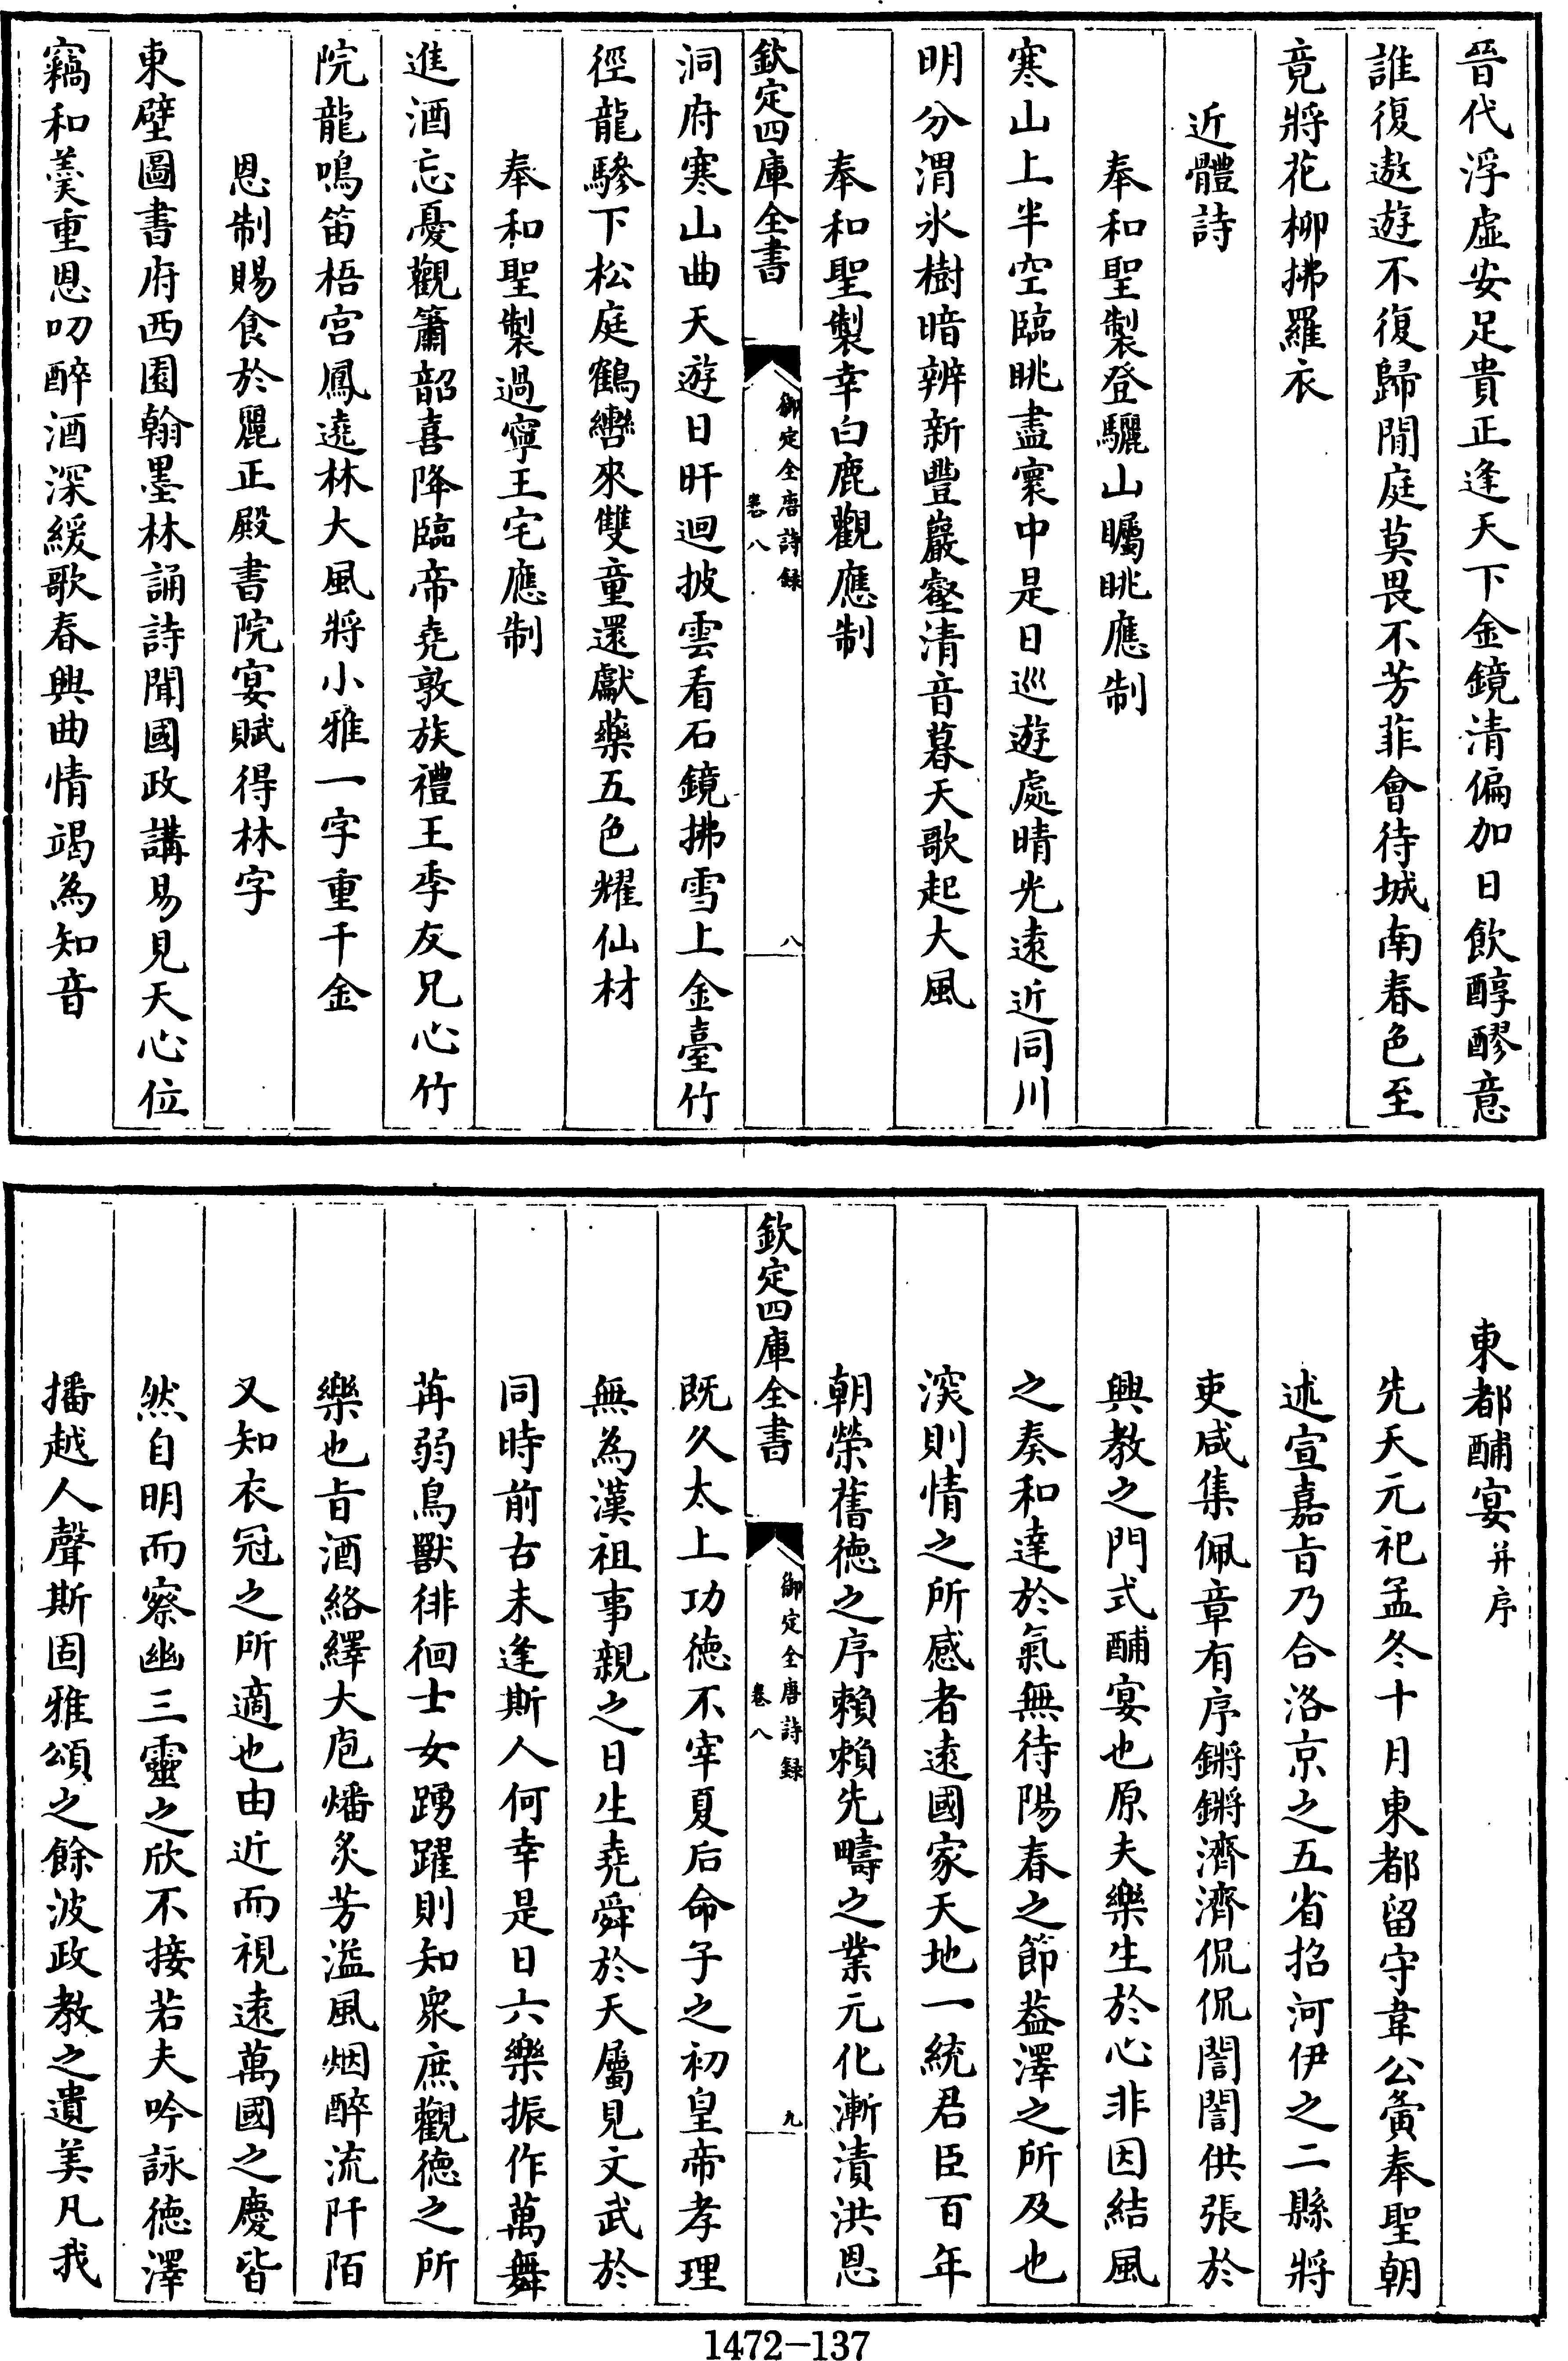 晉代浮虛安足貴正逢天下金鏡清偏加日飲醇醪意
誰復遨遊不復歸閒庭莫畏不芳菲會待城南春色至
竟將花柳拂羅衣
近體詩
奉和聖製登驪山矚眺應制
寒山上半空臨眺盡寰中是日巡遊處晴光遠近同川
明分渭水樹暗辨新豐巖壑清音暮天歌起大風
奉和聖製幸白鹿觀應制
欽定四庫全書
御定全唐詩錄
卷八
八
洞府寒山曲天遊日旰迴披雲看石鏡拂雪上金臺竹
徑龍驂下松庭鶴轡來雙童還獻藥五色耀仙材
奉和聖製過寧王宅應制
進酒忘憂觀簫韶喜降臨帝堯敦族禮王季友兄心竹
院龍鳴笛梧宮鳳遶林大風將小雅一字重千金
恩制賜食於麗正殿書院宴賦得林字
東壁圖書府西園翰墨林誦詩聞國政講易見天心位
竊和羹重恩叨醉酒深緩歌春興曲情竭為知音
東都酺宴并序
先天元祀孟冬十月東都留守韋公夤奉聖朝
述宣嘉旨乃合洛京之五省招河伊之二縣將
吏咸集佩章有序鏘鏘濟濟侃侃誾誾供張於
興教之門式酺宴也原夫樂生於心非因結風
之奏和達於氣無待陽春之節益澤之所及也
深則情之所感者遠國家天地一統君臣百年
朝榮舊德之序賴賴先疇之業元化漸漬洪恩
欽定四庫全書
御定全唐詩錄
卷八
九
既久太上功德不宰夏后命子之初皇帝孝理
無為漢祖事親之日生堯舜於天屬見文武於
同時前古未逢斯人何幸是日六樂振作萬舞
苒弱鳥獸徘徊士女踴躍則知衆庶觀德之所
樂也旨酒絡繹大庖燔炙芳溢風烟醉流阡陌
又知衣冠之所適也由近而視遠萬國之慶皆
然自明而察幽三靈之欣不接若夫吟詠德澤
播越人聲斯固雅頌之餘波政教之遺美凡我
1472-137